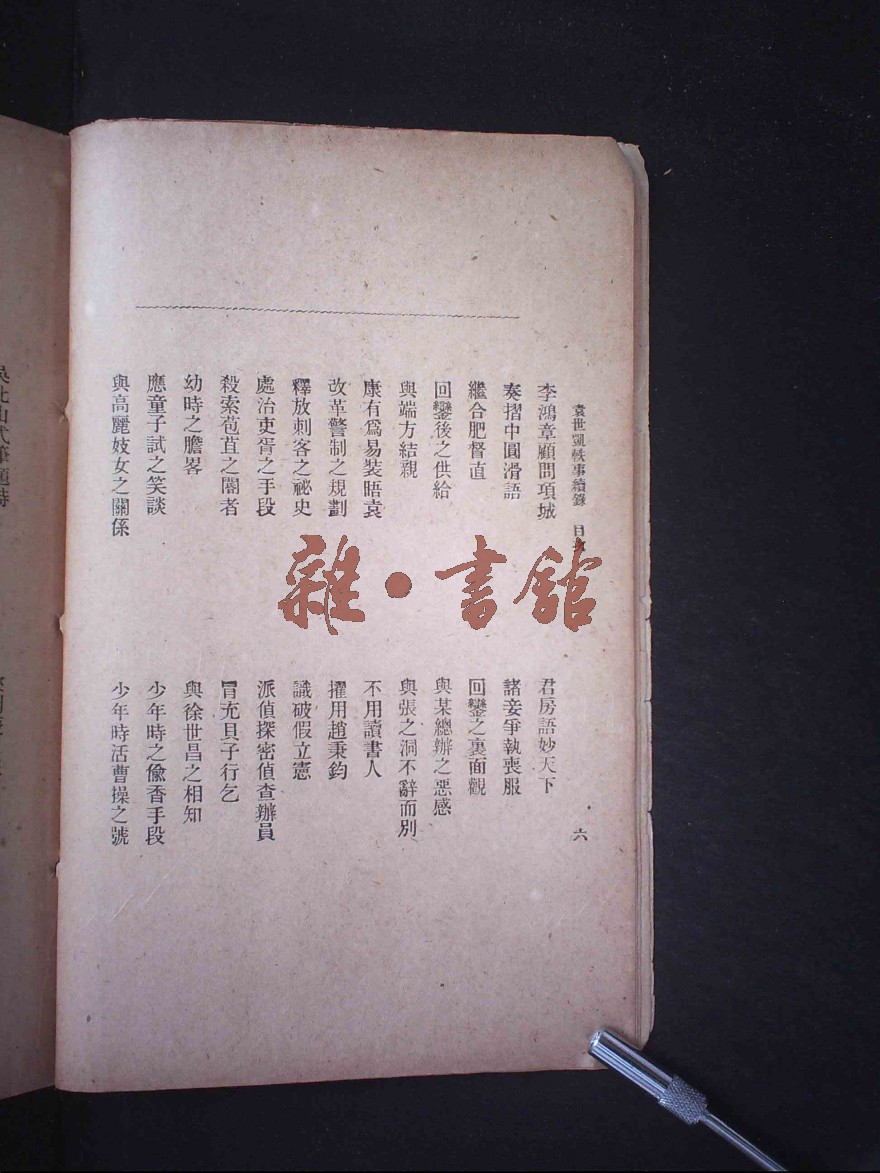 袁世凱軼事續錄 目次 六
李鴻章顧問項城
君房語妙天下
奏摺中圓滑語
諸妾爭執喪服
繼合肥督直
回鑾之裏面觀
回鑾後之供給
與某總辦之惡感
與端方結親
與張之洞不辭而別
康有爲易裝晤袁
不用讀書人
改革警制之規劃
擢用趙秉鈞
釋放刺客之祕史
識破假立憲
處治吏胥之手段
派偵探密偵查辦員
殺索苞苴之閽者
冒充貝子行乞
幼時之膽畧
與徐世昌之相知
應童子試之笑談
少年時之偸香手段
與高麗妓女之關係
少年時活曹操之號
雜·書館